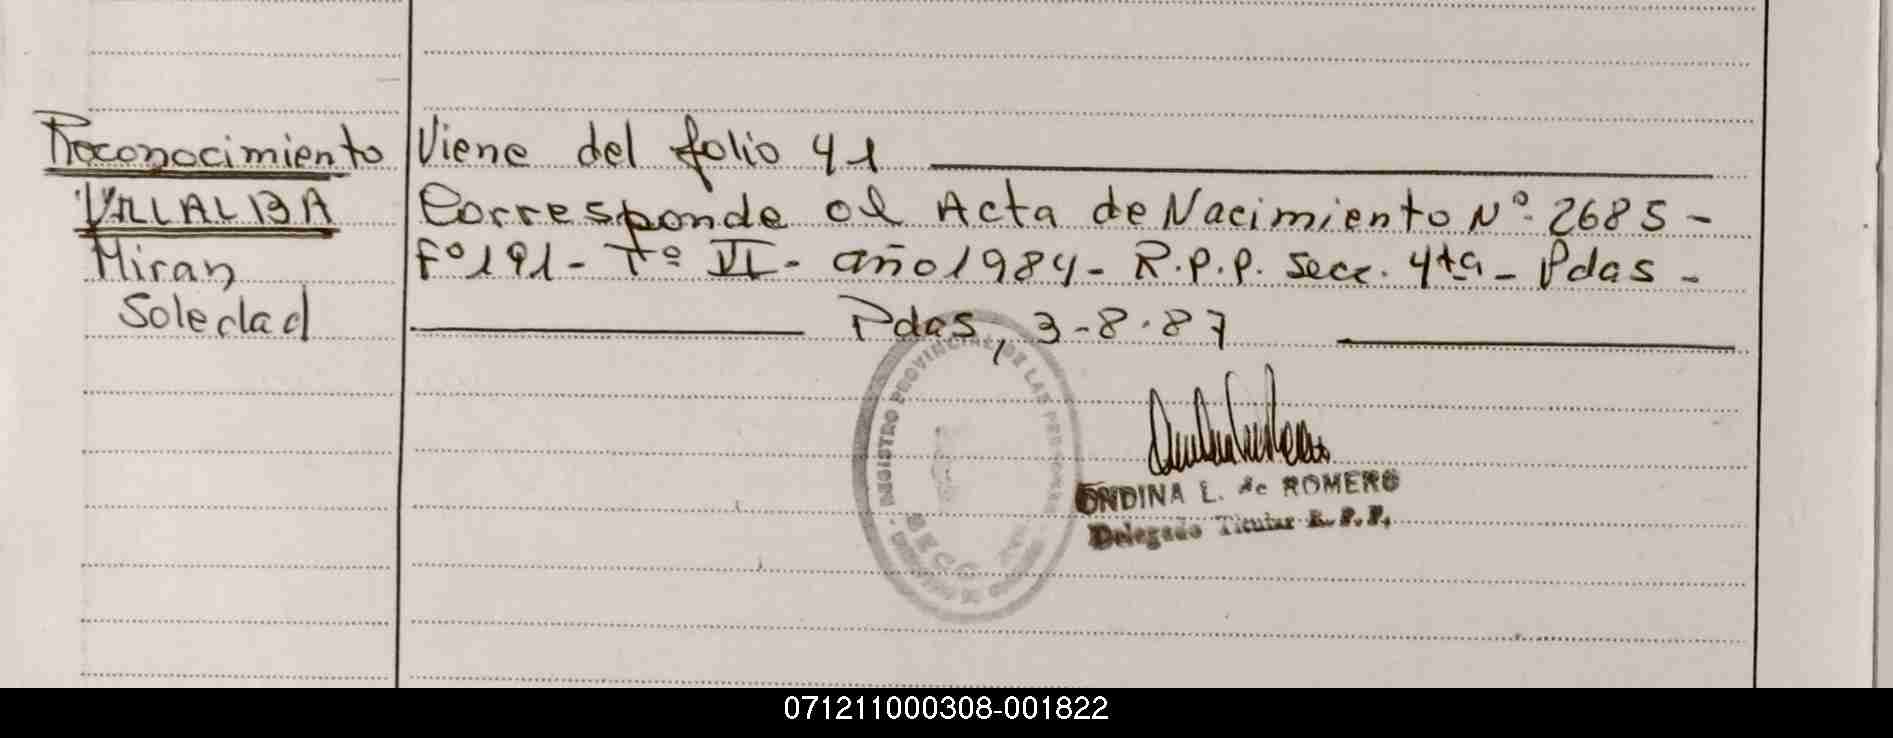 Reconocimiento
VILLALBA
Miran
Soledad
Viene del folio 41
Corresponde al Acta de Nacimiento Nº 2685 -
Fº 191 - Tº VI - año 1984 - R.P.P. secc. 4ta - Pdas -
Pdas, 3-8-87
REGISTRO PROVINCIAL DE LAS PERSONAS
ONDINA L. de ROMERO
Delegado Titular R. P. P.
071211000308-001822